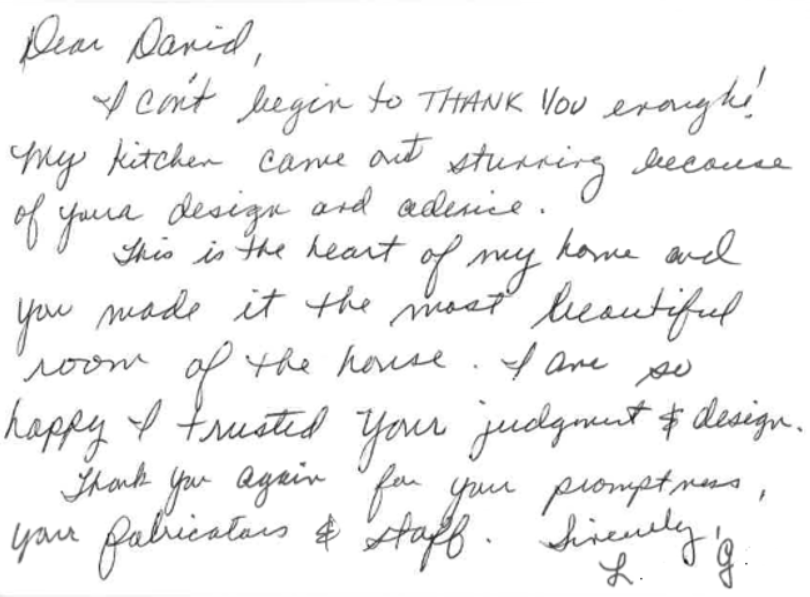 Dear David,
I can't begin to THANK YOU enough!
My kitchen came out stunning because
of your design and advice.
This is the heart of my home and
you made it the most beautiful
room of the house. I am so
happy I trusted your judgment & design.
Thank you again for your promptness,
your fabricators & staff. Sincerely,
L. G.